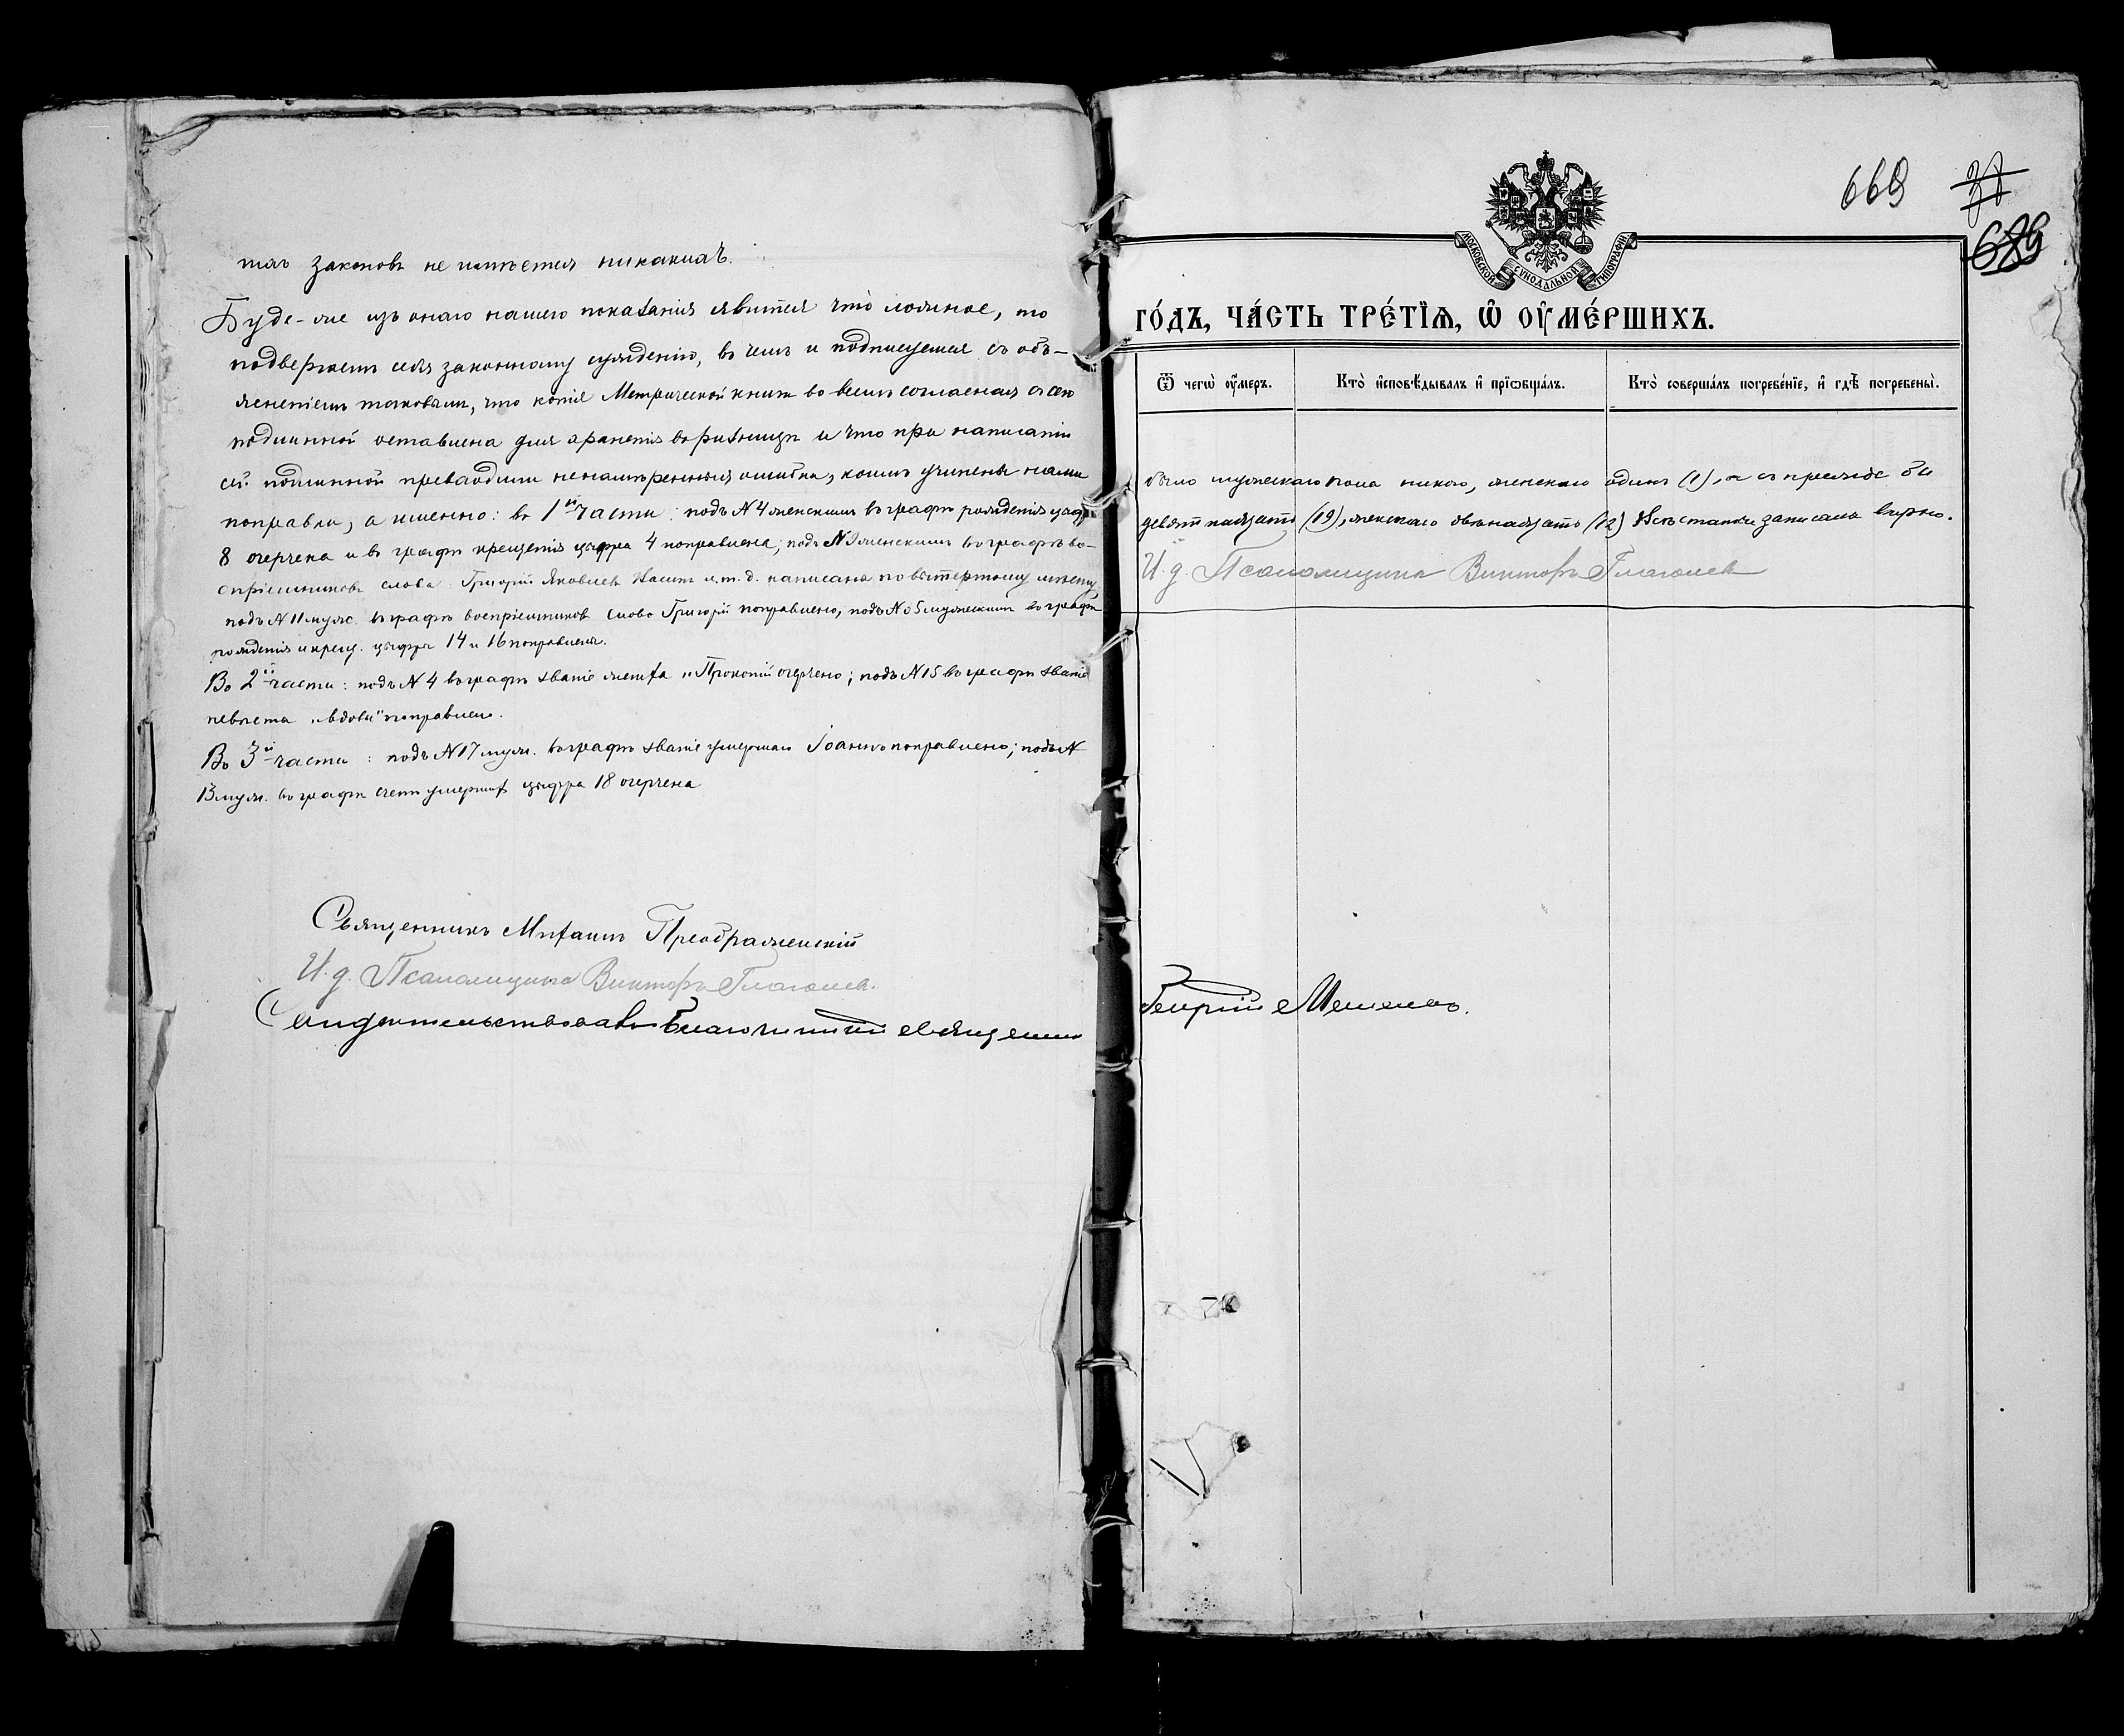 тивъ законовъ не имѣется никакихъ.
Буде-же изъ онаго нашего показанія явится что ложное, то
подвергаемъ себя законному сужденію, въ чемъ и подписуемся съ объ-
ясненіемъ таковымъ, что копія Метрической книги во всемъ согласная съ сею
подлинной оставлена для храненія въ ризницѣ и что при написаніи
сей подлинной превходили ненамѣренныя ошибки, коимъ учинены нами
поправки, а именно: въ 1й части: подъ №4 женскимъ въ графѣ рожденія цифра
8 очерчена и въ графѣ крещенія цыфра 4 поправлена; подъ №9 женскимъ въ графѣ во-
спріемниковъ слова Григорій Яковлевъ и.т.д. написана по вытертому мѣсту
подъ №11 муж. въ графѣ воспріемниковъ слово Григорій поправлено, подъ №5 мужескимъ въ графѣ
рожденія и крещ. цыфра 14 и 16 поправлены.
Во 2й части: подъ №4 въ графѣ званіе жениха „Прокопій очерчено; подъ №15 въ графѣ званіе
невѣста „вдова" поправлено.
Въ 3й части: подъ №17 муж. въ графѣ званіе умершаго Іоаннъ поправлено; подъ №
13 муж. въ графѣ счетъ умершихъ цыфра 18 очерчена
Священникъ Михаилъ Преображенскій
И. д. Псаломщика Викторъ Глаголев.
Свидѣтельствовалъ Благочинный священникъ
669
37
689
МОСКОВСКОЙ СУНОДАЛЬНОЙ ТИПОГРАФІИ
ГО́ДЪ, ЧА́СТЬ ТРЕ́ТЇѦ, Ѡ҆ ОУ҆МЕ́РШИХЪ.
Ѿ чегѡ̀ оу҆́меръ. Кто̀ и҆сповѣ́дывалъ и҆ прїѡбща́лъ. Кто̀ соверша́лъ погребе́нїе, и҆ гдѣ̀ погребены̀.
было мужескаго пола никого, женскаго одинъ (1), а съ прежде бы
девятнадцать (19), женскаго двѣнадцать (12) Всѣ статьи записаны вѣрно.
И. д. Псаломщика Викторъ Глаголев
Георгій